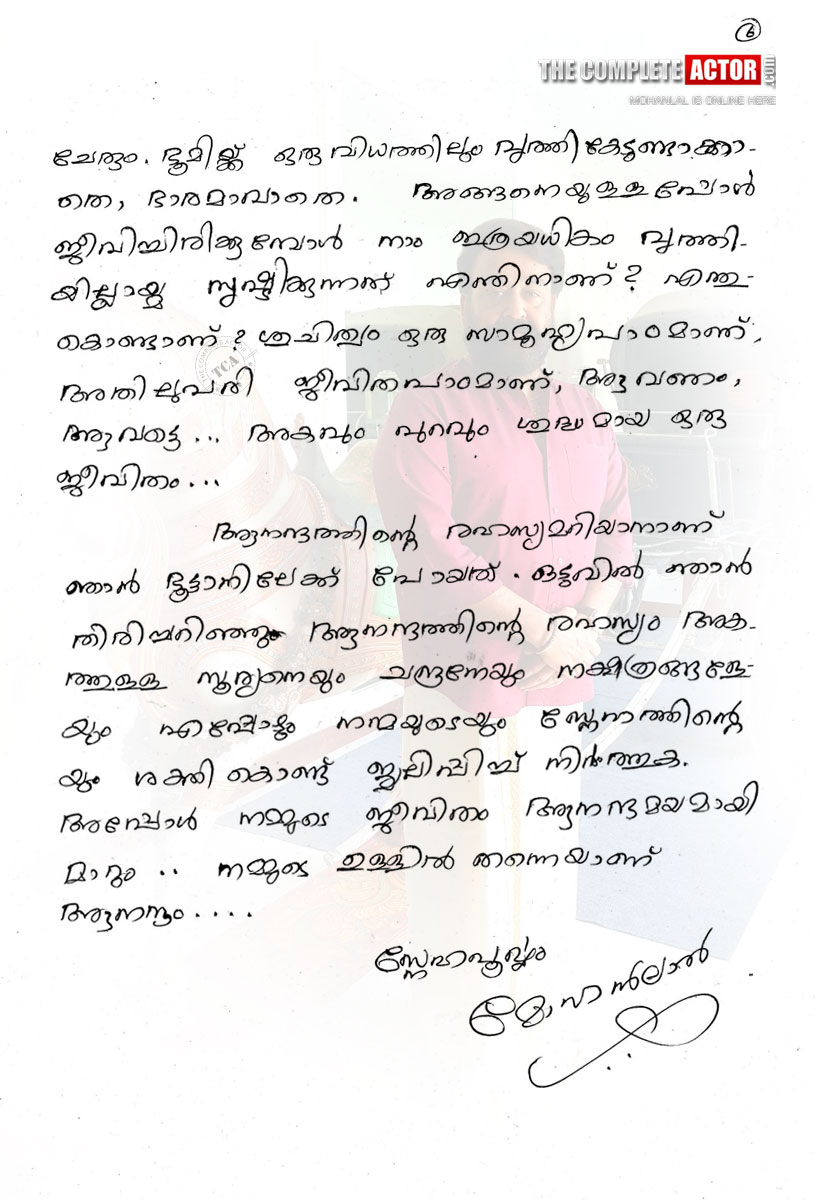 6
THE COMPLETE ACTOR .COM
MOHANLAL IS ONLINE HERE
ചേരും. ഭൂമിയ്ക്ക് ഒരു വിധത്തിലും വൃത്തികേടുണ്ടാക്കാ-
തെ, ഭാരമാവാതെ. അങ്ങനെയുള്ളപ്പോൾ
ജീവിച്ചിരിക്കുമ്പോൾ നാം ഇത്രയധികം വൃത്തി-
യില്ലായ്മ സൃഷ്ടിക്കുന്നത് എന്തിനാണ്? എന്തു-
കൊണ്ടാണ്? ശുചിത്വം ഒരു സാമൂഹ്യപാഠമാണ്,
അതിലുപരി ജീവിതപാഠമാണ്, ആവണം,
ആവട്ടെ... അകവും പുറവും ശുദ്ധമായ ഒരു
ജീവിതം...
ആനന്ദത്തിന്റെ രഹസ്യമറിയാനാണ്
ഞാൻ ഭൂട്ടാനിലേക്ക് പോയത്. ഒടുവിൽ ഞാൻ
തിരിച്ചറിഞ്ഞു ആനന്ദത്തിന്റെ രഹസ്യം അക-
ത്തുള്ള സൂര്യനെയും ചന്ദ്രനേയും നക്ഷത്രങ്ങളേ-
യും എപ്പോഴും നന്മയുടെയും സ്നേഹത്തിന്റെ
യും ശക്തി കൊണ്ട് ജ്വലിപ്പിച്ച് നിർത്തുക.
അപ്പോൾ നമ്മുടെ ജീവിതം ആനന്ദമയമായി
മാറും .. നമ്മുടെ ഉള്ളിൽ തന്നെയാണ്
ആനന്ദം....
സ്നേഹപൂർവ്വം
മോഹൻലാൽ
TCA